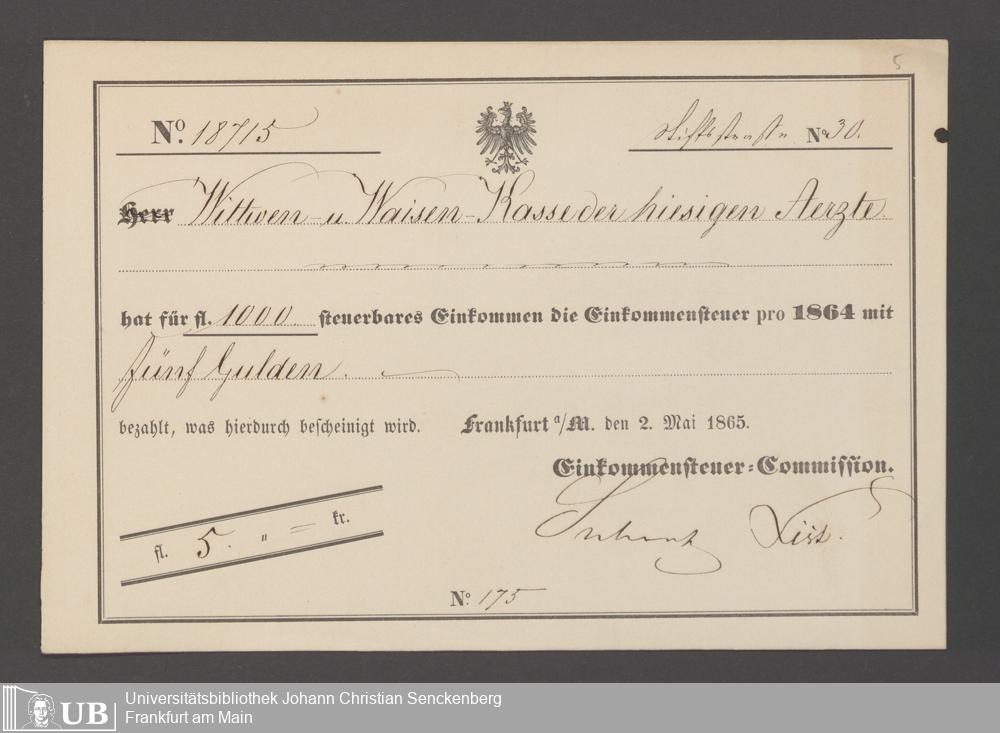 5
No. 18715
Stiftstrasse No 30.
Herr Wittwen- u Waisen-Kasse der hiesigen Aerzte.
hat für fl. 1000. steuerbares Einkommen die Einkommensteuer pro 1864 mit
fünf Gulden.
bezahlt, was hierdurch bescheinigt wird. Frankfurt a/M. den 2. Mai 1865.
Einkommensteuer-Commission.
List.
fl. 5. " = kr.
No. 175
UB
Universitätsbibliothek Johann Christian Senckenberg
Frankfurt am Main